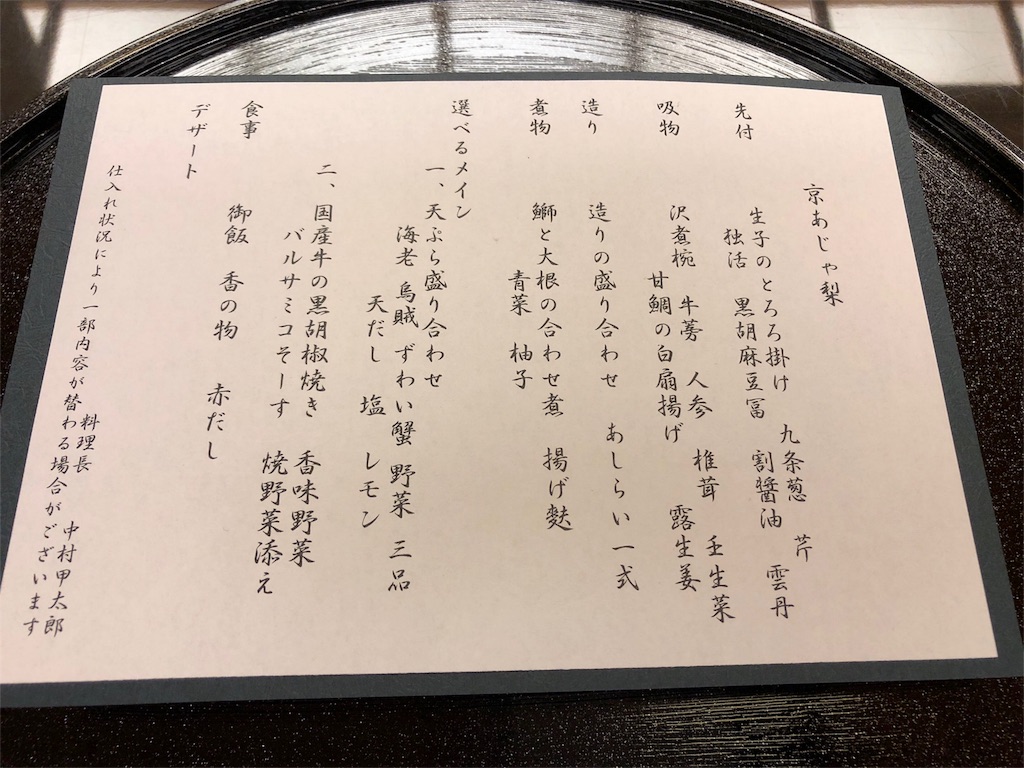 京あじゃ梨
先付
生子のとろろ掛け 九条葱 芹
独活 黒胡麻豆冨 割醤油 雲丹
吸物
沢煮椀 牛蒡 人参 椎茸 壬生菜
甘鯛の白扇揚げ 露生姜
造り
造りの盛り合わせ あしらい一式
煮物
鰤と大根の合わせ煮 揚げ麩
青菜 柚子
選べるメイン
一、天ぷら盛り合わせ
海老 烏賊 ずわい蟹 野菜三品
天だし 塩 レモン
二、国産牛の黒胡椒焼き 香味野菜
バルサミコそーす 焼野菜添え
食事
御飯 香の物 赤だし
デザート
料理長 中村甲太郎
仕入れ状況により一部内容が替わる場合がございます